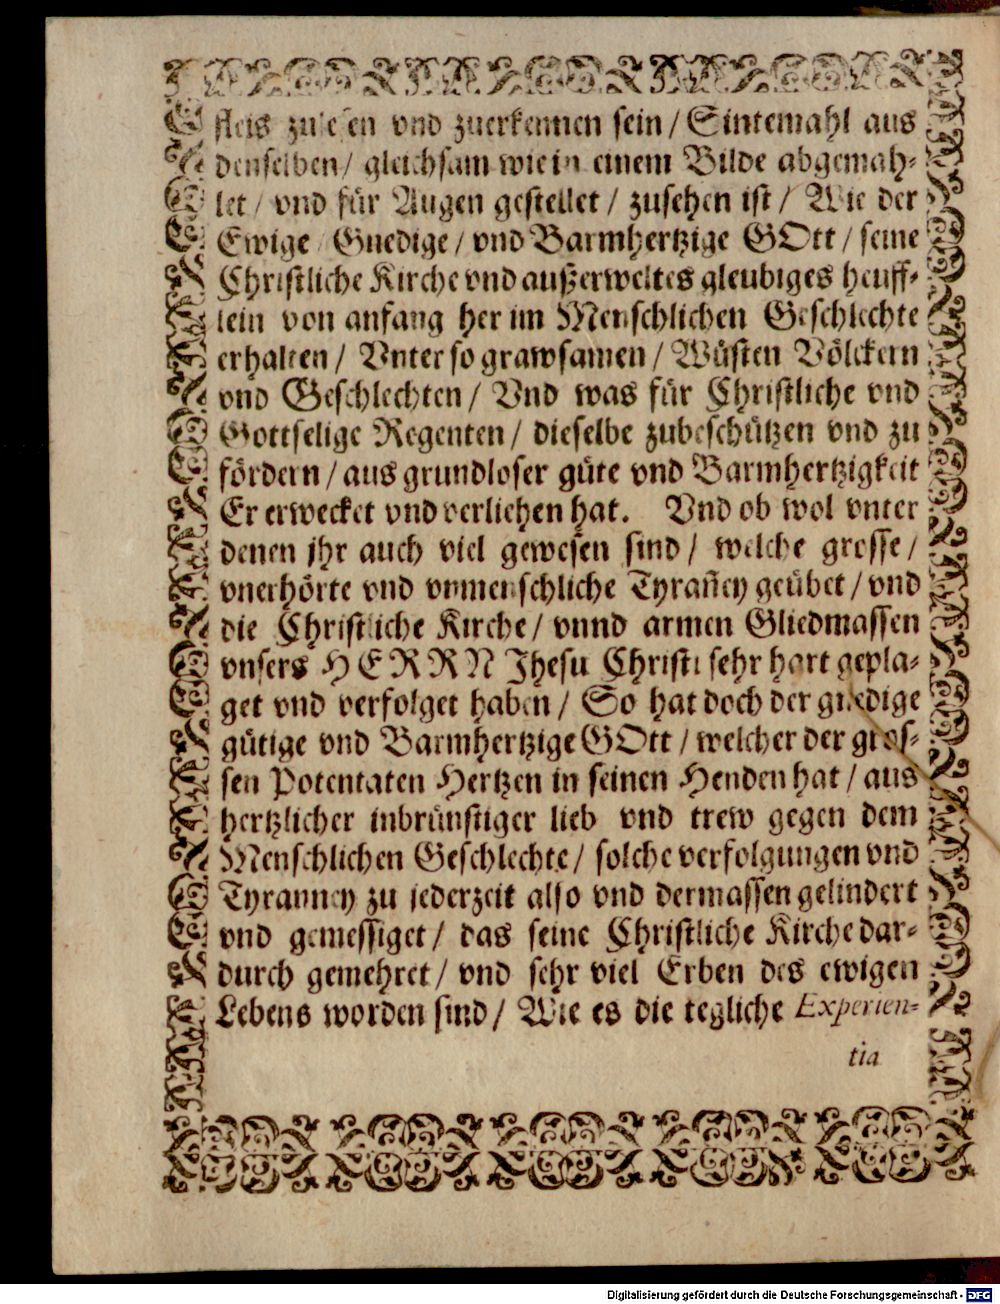 fleis zulesen vnd zuerkennen sein / Sintemahl aus
denselben / gleichsam wie in einem Bilde abgemah-
let / vnd für Augen gestellet / zusehen ist / Wie der
Ewige / Gnedige / vnd Barmhertzige GOtt / seine
Christliche Kirche vnd außerweltes gleubiges heuff-
lein von anfang her im Menschlichen Geschlechte
erhalten / Vnter so grawsamen / Wüsten Völckern
vnd Geschlechten / Vnd was für Christliche vnd
Gottselige Regenten / dieselbe zubeschützen vnd zu
fördern / aus grundloser güte vnd Barmhertzigkeit
Er erwecket vnd verliehen hat. Vnd ob wol vnter
denen jhr auch viel gewesen sind / welche grosse /
vnerhörte vnd vnmenschliche Tyrañey geübet / vnd
die Christliche Kirche / vnnd armen Gliedmassen
vnsers HERRN Jhesu Christi sehr hart gepla-
get vnd verfolget haben / So hat doch der gnedige
gütige vnd Barmhertzige GOtt / welcher der gros-
sen Potentaten Hertzen in seinen Henden hat / aus
hertzlicher inbrünstiger lieb vnd trew gegen dem
Menschlichen Geschlechte / solche verfolgungen vnd
Tyranney zu jederzeit also vnd dermassen gelindert
vnd gemessiget / das seine Christliche Kirche dar-
durch gemehret / vnd sehr viel Erben des ewigen
Lebens worden sind / Wie es die tegliche Experien-
tia
Digitalisierung gefördert durch die Deutsche Forschungsgemeinschaft - DFG